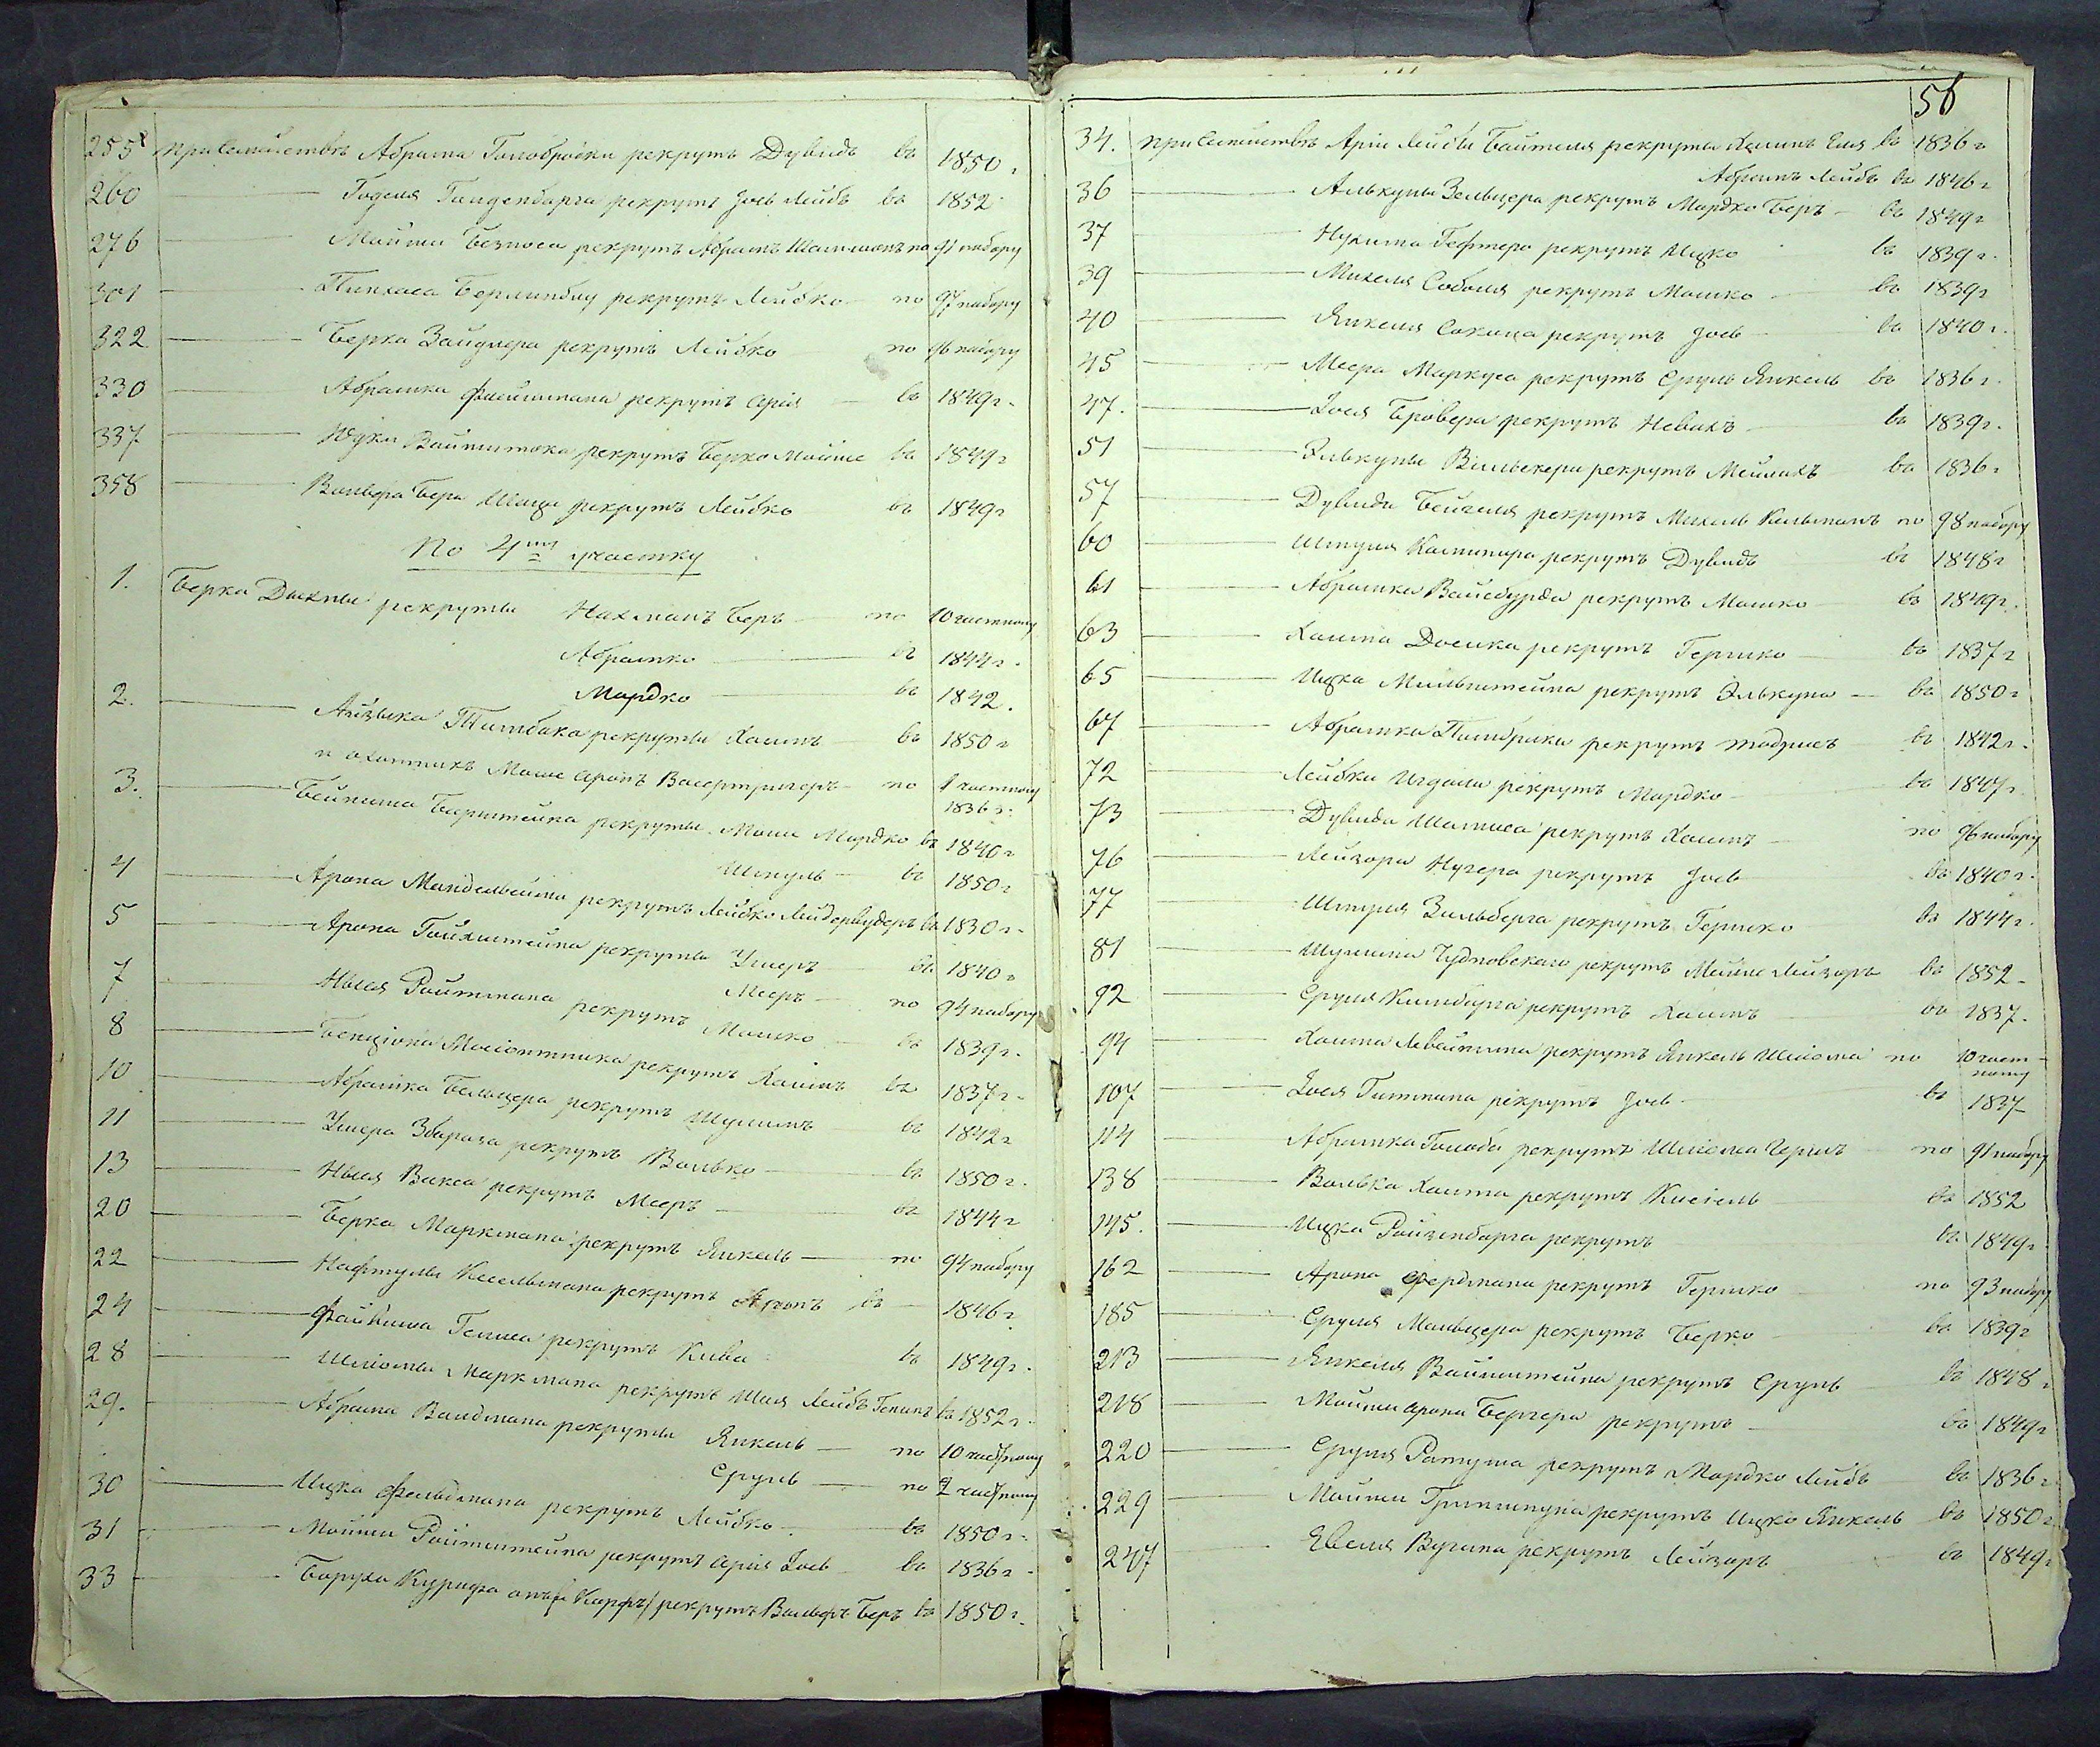 255 при Семействѣ Абрама Голобродки рекрутъ Дувидъ въ 1850 г
260 Годеля Гинденбарга рекрутъ Іосъ Лейбъ въ 1852
276 Мойши Безноса рекрутъ Абрамъ по 91 набору
301 Пинхаса рекрутъ Лейбко по 97 набору
322 Берка Зайдлера рекрутъ Лейбко по 96 набору
330 Абрамка рекрутъ Арія въ 1849 г.
337 Вайнштока рекрутъ Берко Мойше въ 1849 г
358 Вольфа Бера рекрутъ Лейбко въ 1849 г
По 4му участку
1. Берка рекруты Нахманъ Беръ по 10 частному
Абрамко въ 1844 г.
Мордко въ 1842.
2. Айзика рекруты Хаимъ въ 1850 г
и охотникъ Моше Аронъ Васертригеръ по 1 частному
1836 г.
3. Бейниша Бернштейна рекруты Моше Мордко въ 1840 г
Шмуль въ 1850 г
4 Арона Мандельвейма рекрутъ Лейбко въ 1830 г.
5 Арона Гойхштейна рекруты Ушеръ въ 1840 г
Мееръ по 94 набору
7 Ройтмана рекрутъ Мошко въ 1839 г.
8 Бенціона рекрутъ Хаимъ въ 1837 г.
10 Абрамка Бальцера рекрутъ Шулимъ въ 1842 г
11 Ушера Збараза рекрутъ Волько въ 1850 г.
13 Вакса рекрутъ Мееръ въ 1844 г
20 Берка Маркмана рекрутъ Янкель по 94 набору
22 Нафтулы Кесельмана рекрутъ Аронъ въ 1846 г.
24 Файвиша рекрутъ Кива въ 1849 г.
28 Шліомы Маркмана рекрутъ Шая Лейбъ въ 1852 г.
29. Абрама Вандмана рекруты Янкель по 10 частному
Сруль по 2 частному
30 Ицка Фельдмана рекрутъ Лейбко въ 1850 г.
31 Мойши Ройтштейна рекрутъ Арія Іось въ 1836 г.
33 Боруха рекрутъ Вольфъ Беръ въ 1850 г.
56
34. при Семействѣ Аріи Лейбы Байтеля рекруты Хаимъ въ 1836 г
Абрамъ Лейбъ въ 1846 г
36 Элькуны Зельцера рекрутъ Мордко Беръ въ 1849 г
37 Нухима Гефтера рекрутъ Ицко въ 1839 г.
39 Михеля Соболя рекрутъ Мошко въ 1839 г
40 Янкеля рекрутъ Іось въ 1840 г.
45 Меера Маркуса рекрутъ Сруль Янкель въ 1836 г.
47. Іося Бровера рекрутъ въ 1839 г.
51 Элькуны рекрутъ Мейлахъ въ 1836 г
57 Дувида Бейгеля рекрутъ Михель по 98 набору
60 Шмуля рекрутъ Дувидъ въ 1848 г
61 Абрамка рекрутъ Мошко въ 1849 г.
63 Хаима рекрутъ Гершко въ 1837 г
65 Ицка Мильштейна рекрутъ Элькуна въ 1850 г
67 Абрамка рекрутъ въ 1842 г.
72 Лейбки рекрутъ Мордко въ 1847 г.
73 Дувида рекрутъ Хаимъ по 96 набору
76 Лейзора рекрутъ Іось въ 1840 г.
77 Шмуля Зильберга рекрутъ Гершко въ 1844 г.
81 Шулима Чудновскаго рекрутъ Мойше Лейзоръ въ 1852
92 Сруля рекрутъ Хаимъ въ 1837.
94 Хаима рекрутъ Янкель Шліома по 10 част-
ному
107 Іося Гитмана рекрутъ Іось въ 1837
114 Абрамка Голоба рекрутъ Шліома Гершъ по 91 набору
138 Волька Хаима рекрутъ Кисіель въ 1852
145. Ицка Ройзенбарга рекрутъ въ 1849 г
162 Арона Фердмана рекрутъ Гершко по 93 набору
185 Сруля Мельцера рекрутъ Берко въ 1839 г
213 Янкеля Вайнштейна рекрутъ Сруль въ 1848 г
218 Мойши Арона Бергера рекрутъ въ 1849 г
220 Сруля Ратуша рекрутъ Мордко Лейбъ въ 1836 г
229 Мойши рекрутъ Ицко Янкель въ 1850 г
247 Евеля рекрутъ Лейзоръ въ 1849 г